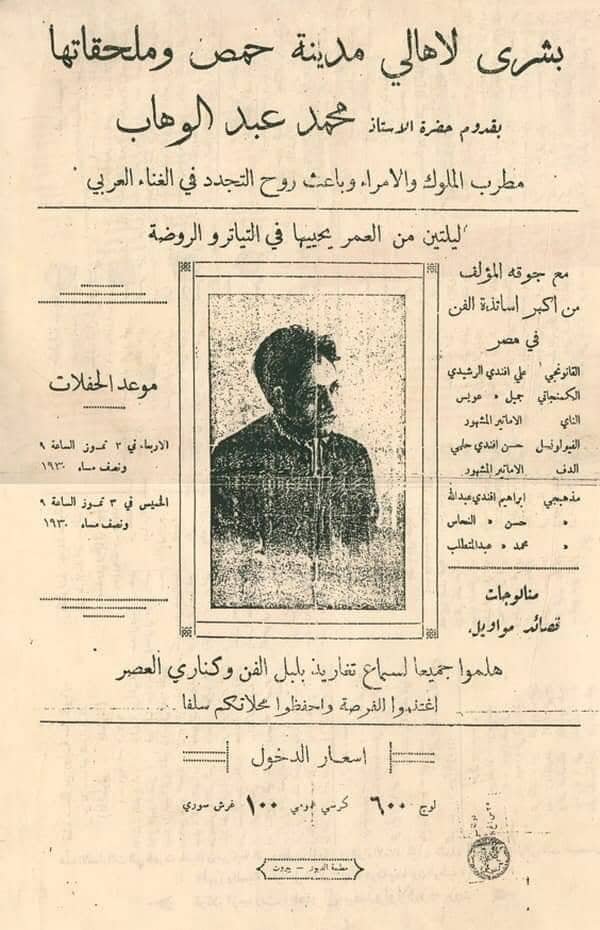 بشرى لاهالي مدينة حمص وملحقاتها
بقدوم حضرة الاستاذ محمد عبد الوهاب
مطرب الملوك والامراء وباعث روح التجدد في الغناء العربي
ليلتين من العمر يحييها في التياترو الروضة
مع جوقه المؤلف
من اكبر اساتذة الفن
في مصر
القانونجي علي افندي الرشيدي
الكمنجاتي جميل » عويس
الناي الاماتير المشهور
الفيولونسل حسن افندي حلمي
الدف الاماتير المشهور
مذهبجي ابراهيم افندي عبدالله
» حسن » النحاس
» محمد » عبدالمتطلب
منالوجات
قصائد مواويل
موعد الحفلات
الاربعاء في ٢ تموز الساعة ٩
ونصف مساء ١٩٣٠
الخميس في ٣ تموز الساعة ٩
ونصف مساء ١٩٣٠
هلموا جميعا لسماع تغاريد بلبل الفن وكناري العصر
اغتنموا الفرصة واحفظوا محلاتكم سلفا
اسعار الدخول
لوج ٦٠٠ كرسي عمومي ١٠٠ غرش سوري
مطبعة الديور — بيروت